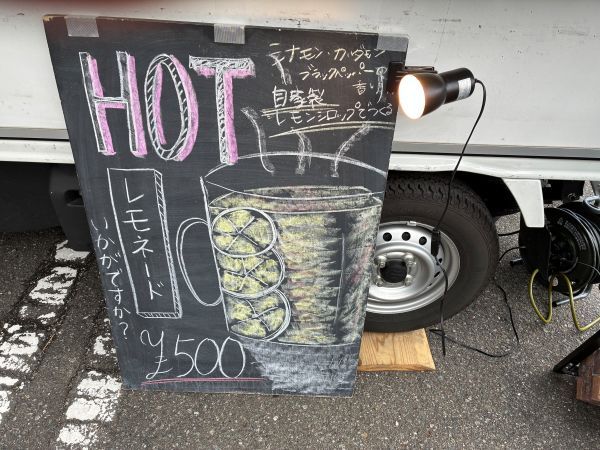 HOT
シナモン・カルダモン
ブラックペッパーの
香り
自家製
レモンシロップでつくる
レモネード
いかがですか？
¥500